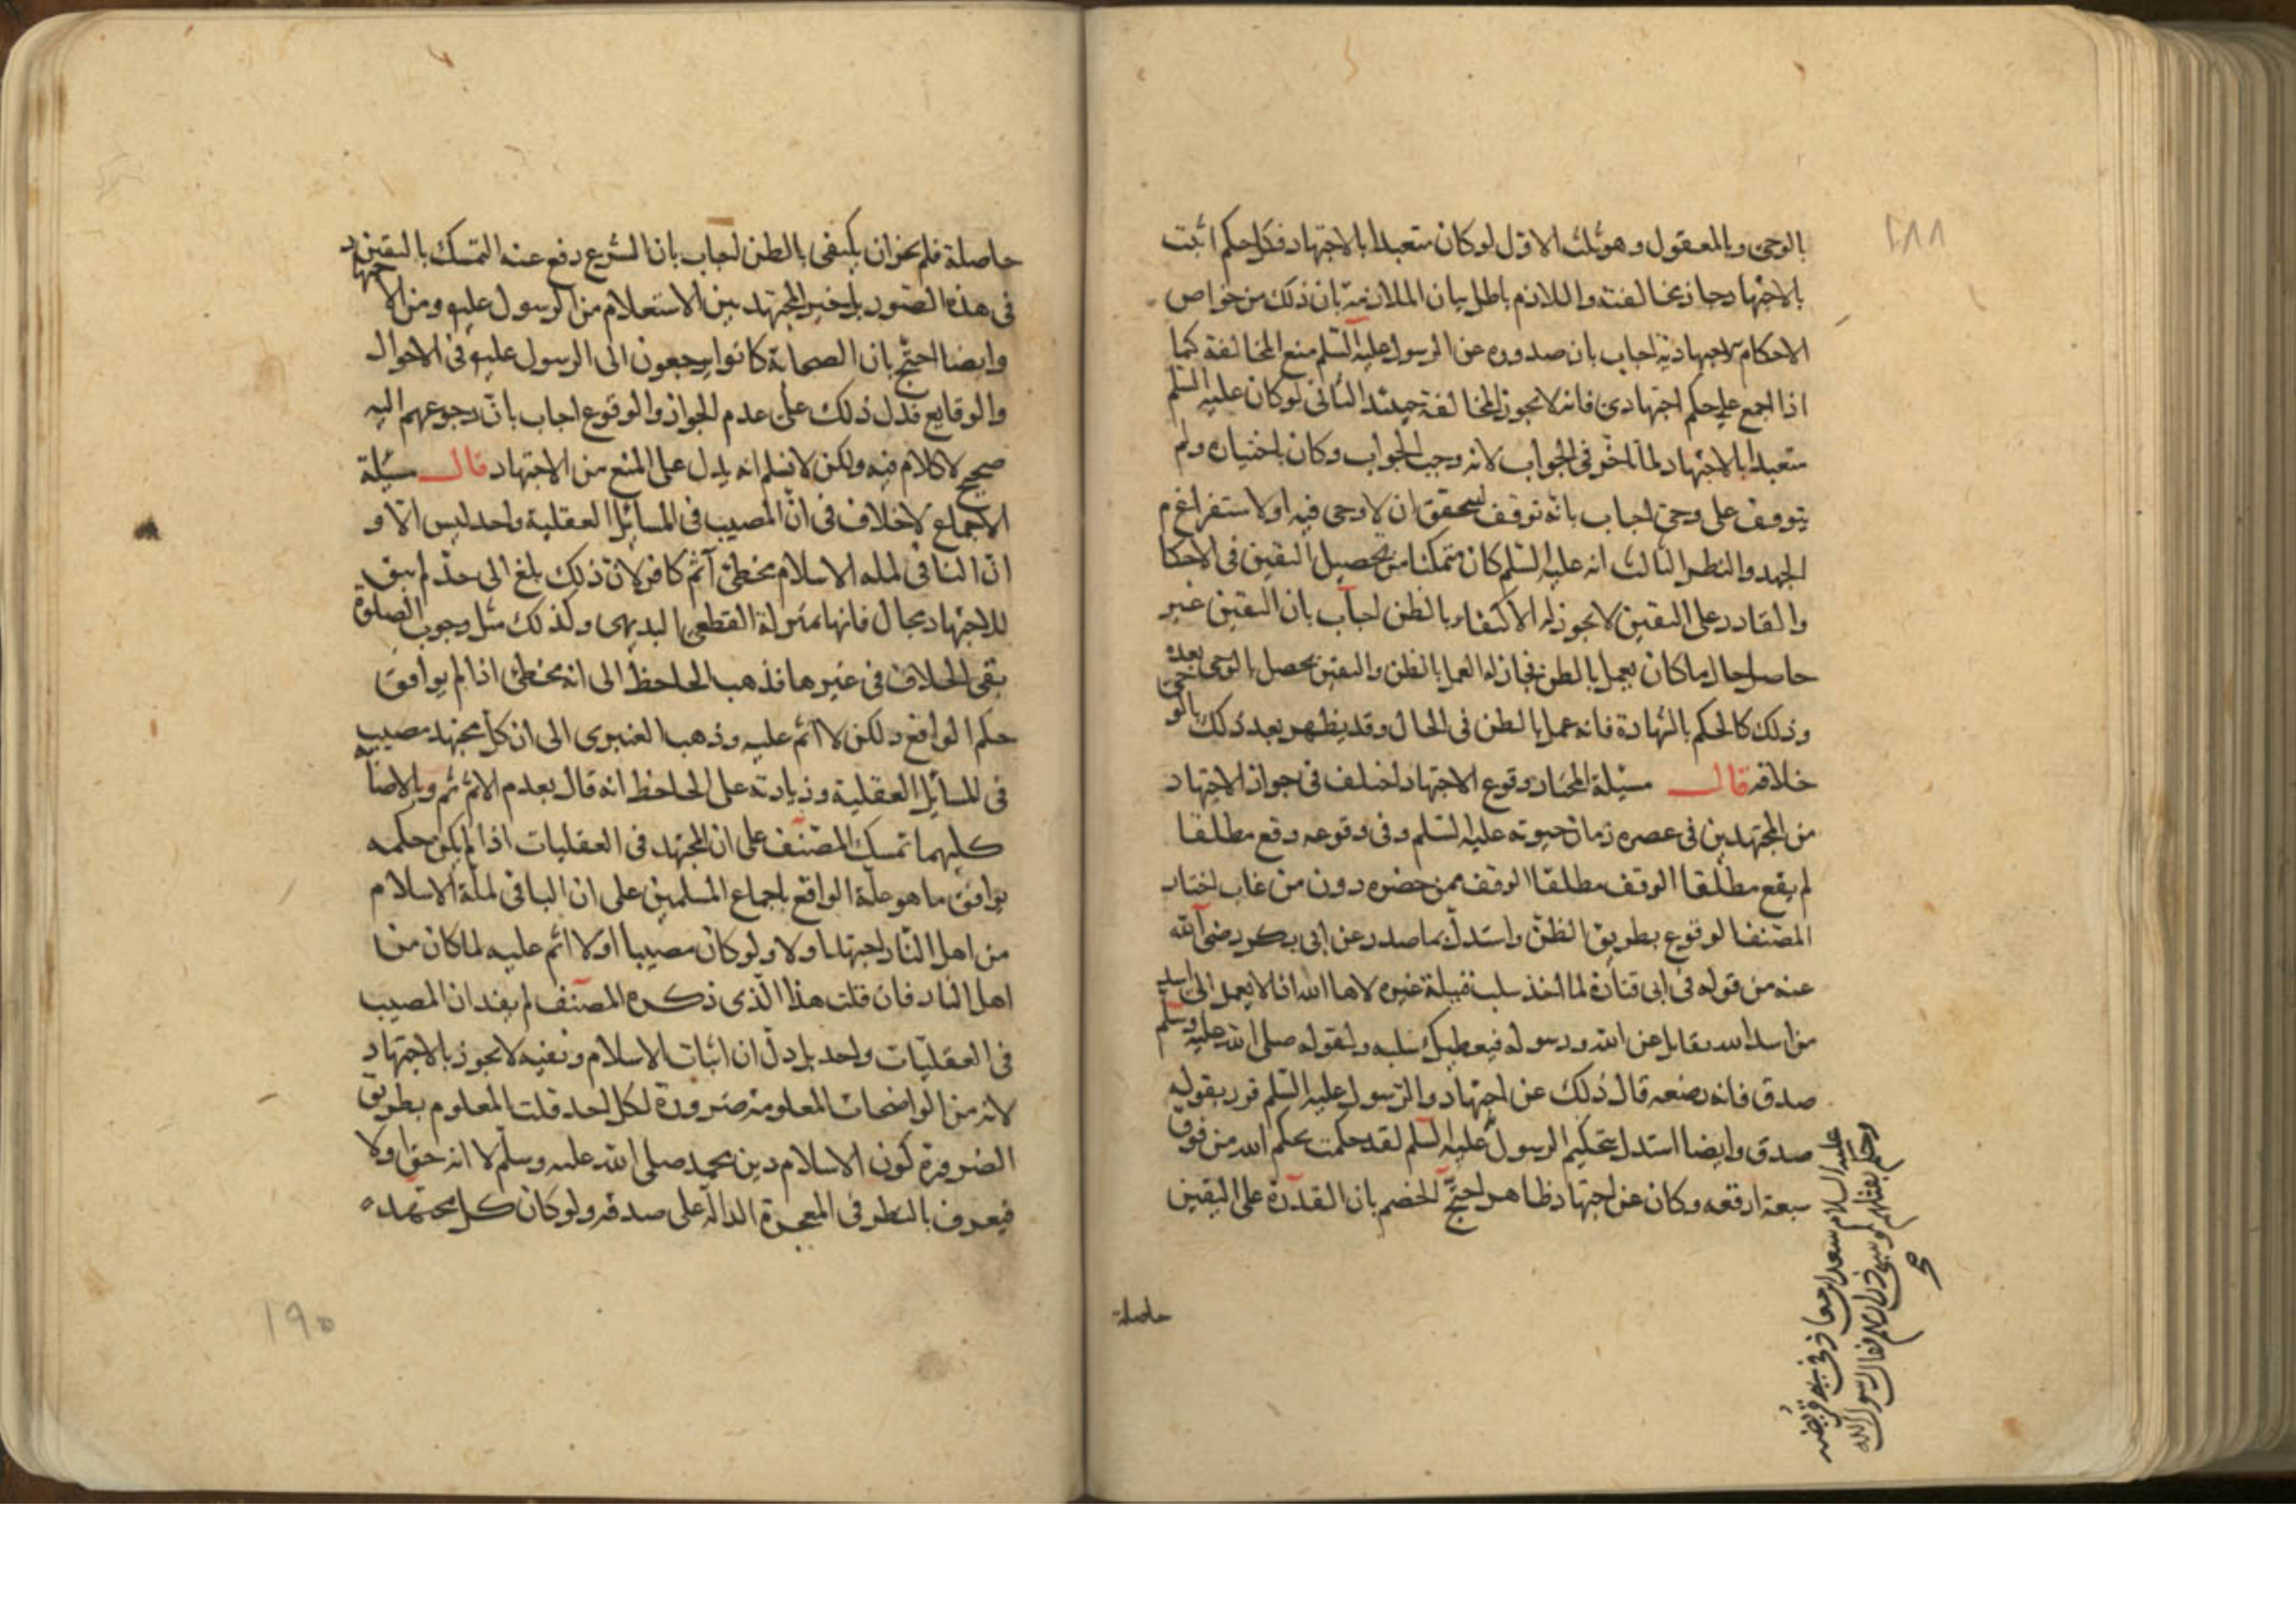 بالوحى وبالمعقول وهو ثلث الاول لو كان متعبدا بالاجتهاد فكل حكم اثبت
بالاجتهاد جاز مخالفته واللازم باطل بيان الملازمة بان ذلك من خواص
الاحكام الاجتهادية اجاب بان صدوره عن الرسول عليه السلم منع المخالفة كما
اذا اجمع على حكم اجتهادى فانه لا يجوز المخالفة حينئذ الثانى لو كان عليه السلم
متعبدا بالاجتهاد لما تاخر فى الجواب لانه وجب الجواب وكان باختياره ولم
يتوقف على وحى اجاب بانه توقف ليتحقق ان لا وحى فيه او لاستفراغ
الجهد والنظر الثالث انه عليه السلم كان متمكنا من تحصيل اليقين فى الاحكام
والقادر على اليقين لا يجوز له الاكتفاء بالظن اجاب بان اليقين غير
حاصل حال ما كان يعمل بالظن فجاز له العمل بالظن واليقين يحصل بالوحى بعده
وذلك كالحكم بالشهادة فانه عمل بالظن فى الحال وقد يظهر بعد ذلك بالوحى
خلافه قال مسئلة المختار وقوع الاجتهاد اختلف فى جواز الاجتهاد
من المجتهدين فى عصره زمان حيوته عليه السلم وفى وقوعه وقع مطلقا
لم يقع مطلقا الوقف مطلقا الوقف فيمن حضره دون من غاب اختار
المصنف الوقوع بطريق الظن واستدل بما صدر عن ابى بكر رضى الله
عنه من قوله فى ابى قتادة لما اخذ سلب قتيله غيره لاها الله اذا لا يعمد الى اسد
من اسد الله يقاتل عن الله ورسوله فيعطيك سلبه ولقوله صلى الله عليه وسلم
صدق فانه رضعه قال ذلك عن اجتهاد والرسول عليه السلم قرر بقوله
صدق وايضا استدل بتحكيم الرسول عليه السلم لقد حكمت بحكم الله من فوق
سبعة ارقعة وكان عن اجتهاد ظاهر احتج الخصم بان القدرة على اليقين
عليه السلام سعد بن معاذ فى بنى قريظه
وحكم بقتلهم وسبى ذراريهم فقال رسول الله
صح
حاصلة
١٨٨
حاصلة فلم يجز ان يكتفى بالظن اجاب بان الشرع دفع عنه التمسك باليقين
فى هذه الصور بل خير المجتهد بين الاستعلام من الرسول عليه ومن الاجتهاد
وايضا احتج بان الصحابة كانوا يرجعون الى الرسول عليه فى الاحوال
والوقايع فدل ذلك على عدم الجواز والوقوع اجاب بان رجوعهم اليه
صحيح لا كلام فيه ولكن لا نسلم انه يدل على المنع من الاجتهاد قال مسئلة
الاجماع لا خلاف فى ان المصيب فى المسائل العقلية واحد ليس الا و
ان النافى لملة الاسلام مخطئ آثم كافر لان ذلك بلغ الى حد لم يبق
للاجتهاد مجال فانها بمنزلة القطعى البديهى وكذلك مثل وجوب الصلوة
بقى الخلاف فى غيرها فذهب الجاحظ الى انه مخطئ اذا لم يوافق
حكم الواقع ولكن لا اثم عليه وذهب العنبرى الى ان كل مجتهد مصيب
فى المسائل العقلية وزيادته على الجاحظ انه قال بعدم الاثم ثم وبالاصابة
كليهما تمسك المصنف على ان المجتهد فى العقليات اذا لم يكن حكمه
يوافق ما هو علة الواقع باجماع المسلمين على ان النافى لملة الاسلام
من اهل النار اجتهد او لا ولو كان مصيبا او لا اثم عليه لما كان من
اهل النار فان قلت هذا الذى ذكره المصنف لم يفد ان المصيب
فى العقليات واحد بل دل ان اثبات الاسلام ونفيه لا يجوز بالاجتهاد
لانه من الواضحات المعلومة ضرورة لكل احد قلت المعلوم بطريق
الضرورة كون الاسلام دين محمد صلى الله عليه وسلم لا انه حق او لا
فيعرف بالنظر فى المعجزة الدالة على صدقه ولو كان كل مجتهد
١٩٠